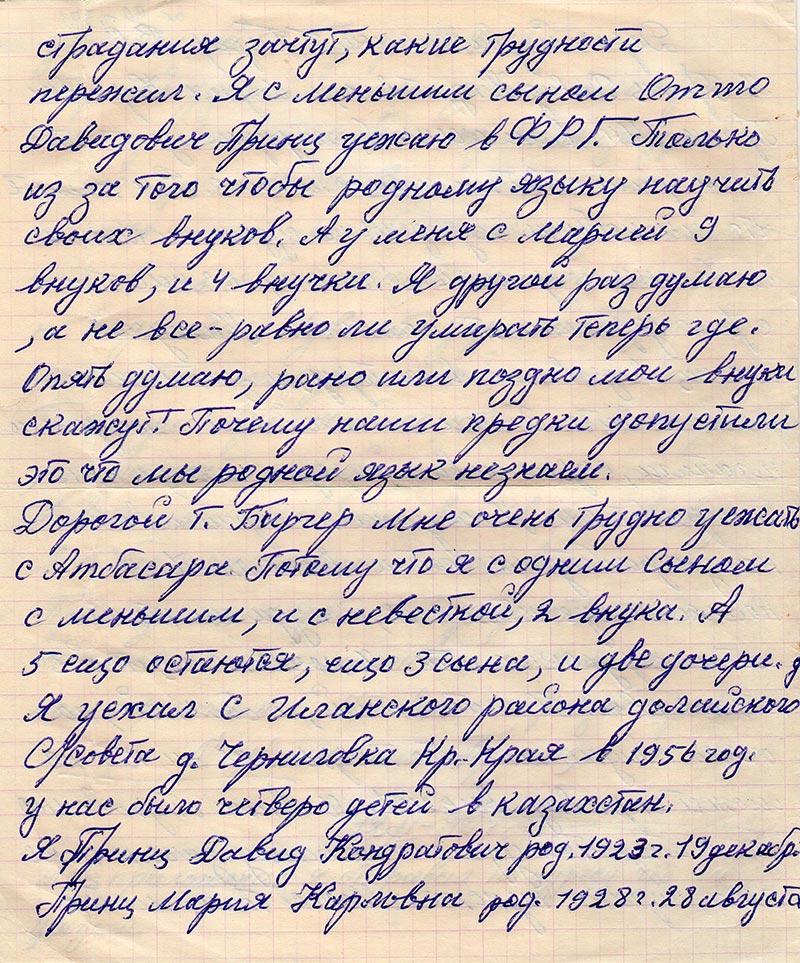 страдания зачтут, какие трудности
пережил. Я с меньшим сыном Отто
Давидович Принц уежаю в ФРГ. Только
из за того чтобы родному языку научить
своих внуков. А у меня с Марией 9
внуков, и 4 внучки. Я другой раз думаю
, а не все-равно ли умирать теперь где.
Опять думаю, рано или поздно мои внуки
скажут! Почему наши предки допустили
это что мы родной язык незнаем.
Дорогой Т. Бирчер мне очень трудно уежать
с Атбасара. Потому что я с одним сыном
с меньшим, и с невесткой, 2 внука. А
5 ещо остаются, ищо 3 сына, и две дочери.
Я уехал с Иланского района долайского
С/совета д. Черниговка Кр.-Края в 1956 год.
у нас было четверо детей в казахстан.
Я Принц Давид Кондратович род. 1923 г. 19 декабр.
Принц Мария Карловна род. 1928 г. 28 августа